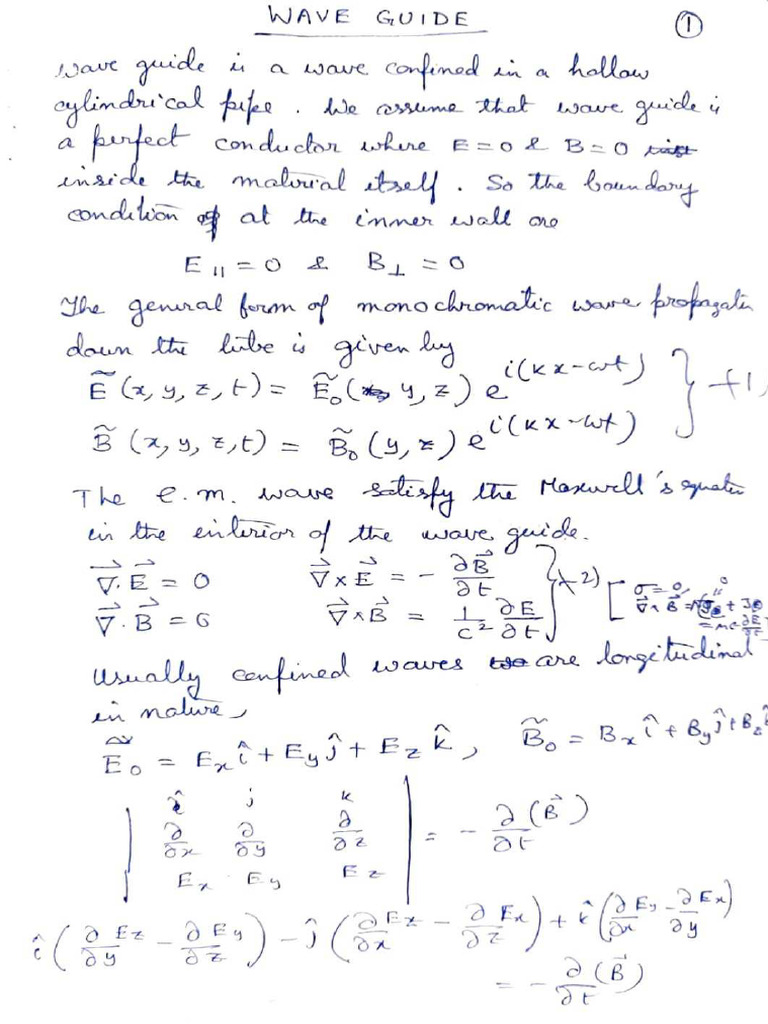 WAVE GUIDE
①
wave guide is a wave confined in a hollow
cylindrical pipe. We assume that wave guide is
a perfect conductor where E=0 & B=0
inside the material itself. So the boundary
condition at the inner wall are
E∥ = 0 & B⊥ = 0
The general form of monochromatic wave propagatin
down the tube is given by
Ẽ (x, y, z, t) = Ẽ₀( y, z) e^{i(kx-ωt)}
B̃ (x, y, z, t) = B̃₀ (y, z) e^{i(kx-ωt)} } (1)
The e.m. wave satisfy the Maxwell's equation
in the interior of the wave guide.
∇⃗.E⃗ = 0 ∇⃗×E⃗ = - ∂B⃗/∂t
∇⃗.B⃗ = 0 ∇⃗×B⃗ = 1/c² ∂E/∂t } (2) [ σ=0,
Usually confined waves are longitudinal
in nature,
Ẽ₀ = Exî + Eyĵ + Ez k̂, B̃₀ = Bxî + Byĵ + Bz
| î j k |
| ∂/∂x ∂/∂y ∂/∂z | = - ∂(B⃗)/∂t
| Ex Ey Ez |
î(∂Ez/∂y - ∂Ey/∂z) - ĵ(∂Ez/∂x - ∂Ex/∂z) + k̂(∂Ey/∂x - ∂Ex/∂y)
= - ∂(B⃗)/∂t